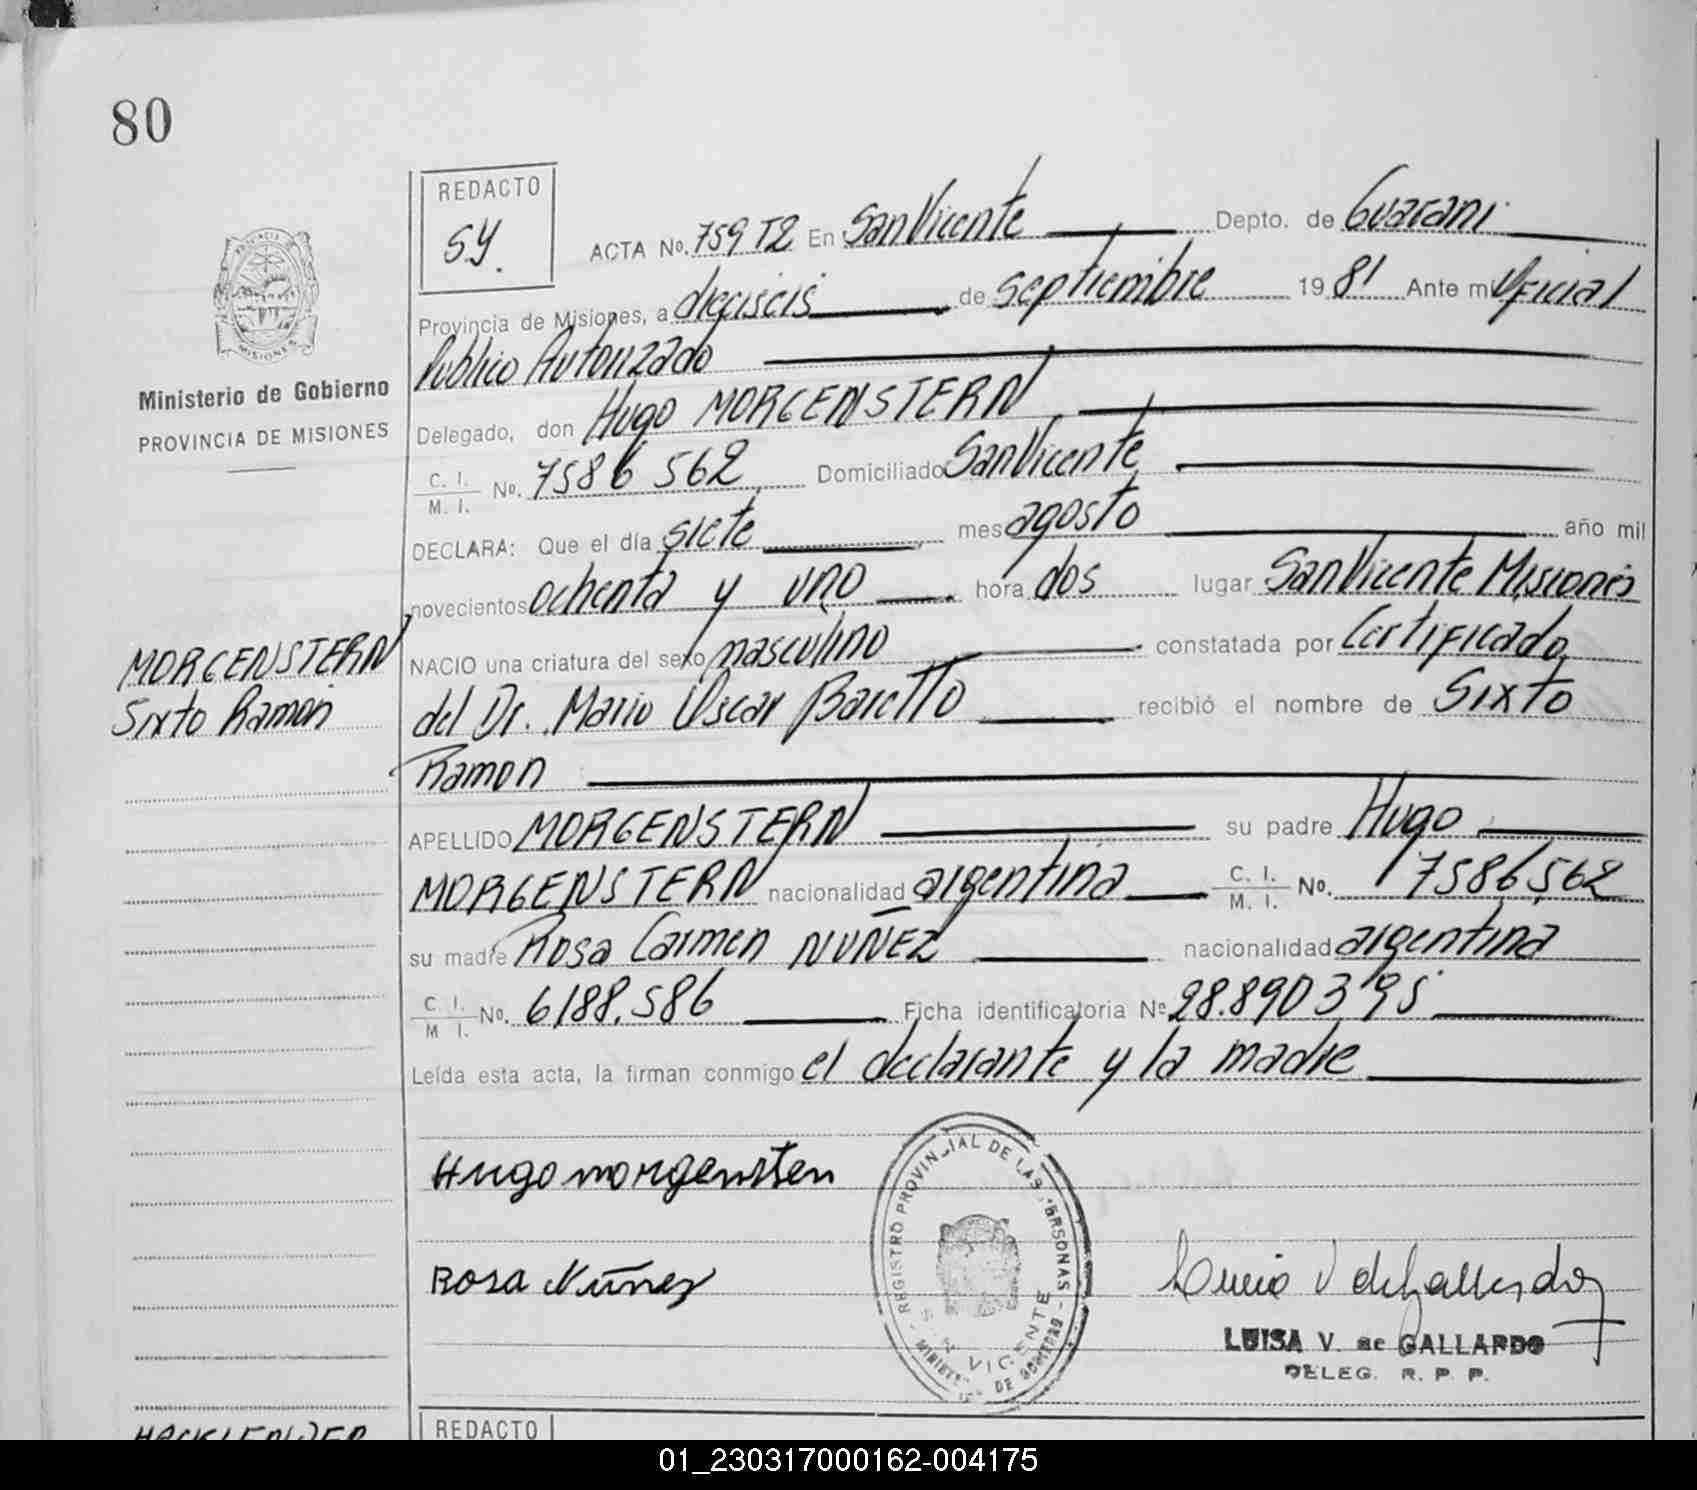 80
REDACTO
S.Y.
ACTA No. 759 T2 En San Vicente Depto. de Guarani
Provincia de Misiones, a dieciseis de septiembre 1981 Ante mi Oficial
Publico Autorizado
Delegado, don Hugo MORGENSTERN
C. I.
M. I. No. 7586562 Domiciliado San Vicente
DECLARA: Que el día siete mes agosto año mil
novecientos ochenta y uno hora dos lugar San Vicente Misiones
NACIO una criatura del sexo masculino constatada por Certificado
del Dr. Mario Oscar Baretto recibió el nombre de Sixto
Ramon
APELLIDO MORGENSTERN su padre Hugo
MORGENSTERN nacionalidad argentina C. I. M. I. No. 7586562
su madre Rosa Carmen NUÑEZ nacionalidad argentina
C. I.
M. I. No. 6188.586 Ficha identificatoria Nº 28.890395
Leída esta acta, la firman conmigo el declarante y la madre
PROVINCIA DE
MISIONES
Ministerio de Gobierno
PROVINCIA DE MISIONES
MORGENSTERN
Sixto Ramón
Hugo morgensten
Rosa Núñez
REGISTRO PROVINCIAL DE LAS PERSONAS
SAN VICENTE
MINISTERIO DE GOBIERNO
LUISA V. de GALLARDO
DELEG. R. P. P.
REDACTO
01_230317000162-004175